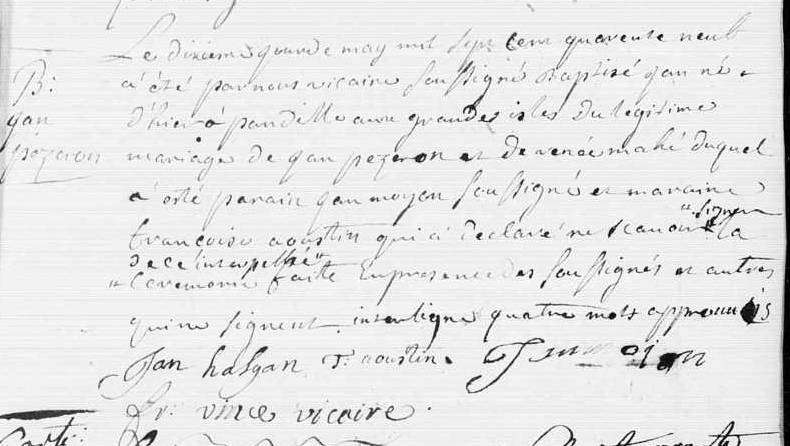 Le dixieme jour de may mil sept cent quarente neuf
B:
a été par nous vicaire soussigné Baptisé jan né
jan
d'hier à pandille aux grandes isles du legitime
pezeron
mariage de jan pezeron et de renée mahé duquel
a esté parain jan moyon soussigné et maraine
"signer
francoise aoustin qui a declaré ne scavoir" la
de ce interpellée"
"ceremonie faite en presence des soussignés et autres
qui ne signent interligne quatre mots approuvés
Jan halgan F: aoustin. J moion
fr: vince vicaire.